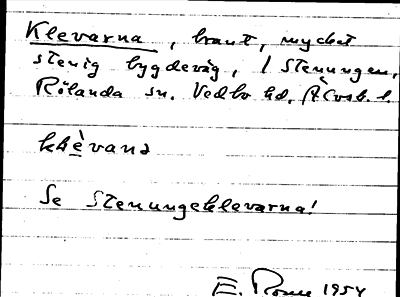 Klevarna, brant, mycket
stenig bygdeväg, i Stenungen,
Rölanda sn. Vedbo hd, Älvsb. l.
klèvana
Se Stenungeklevarna!
E. 1954